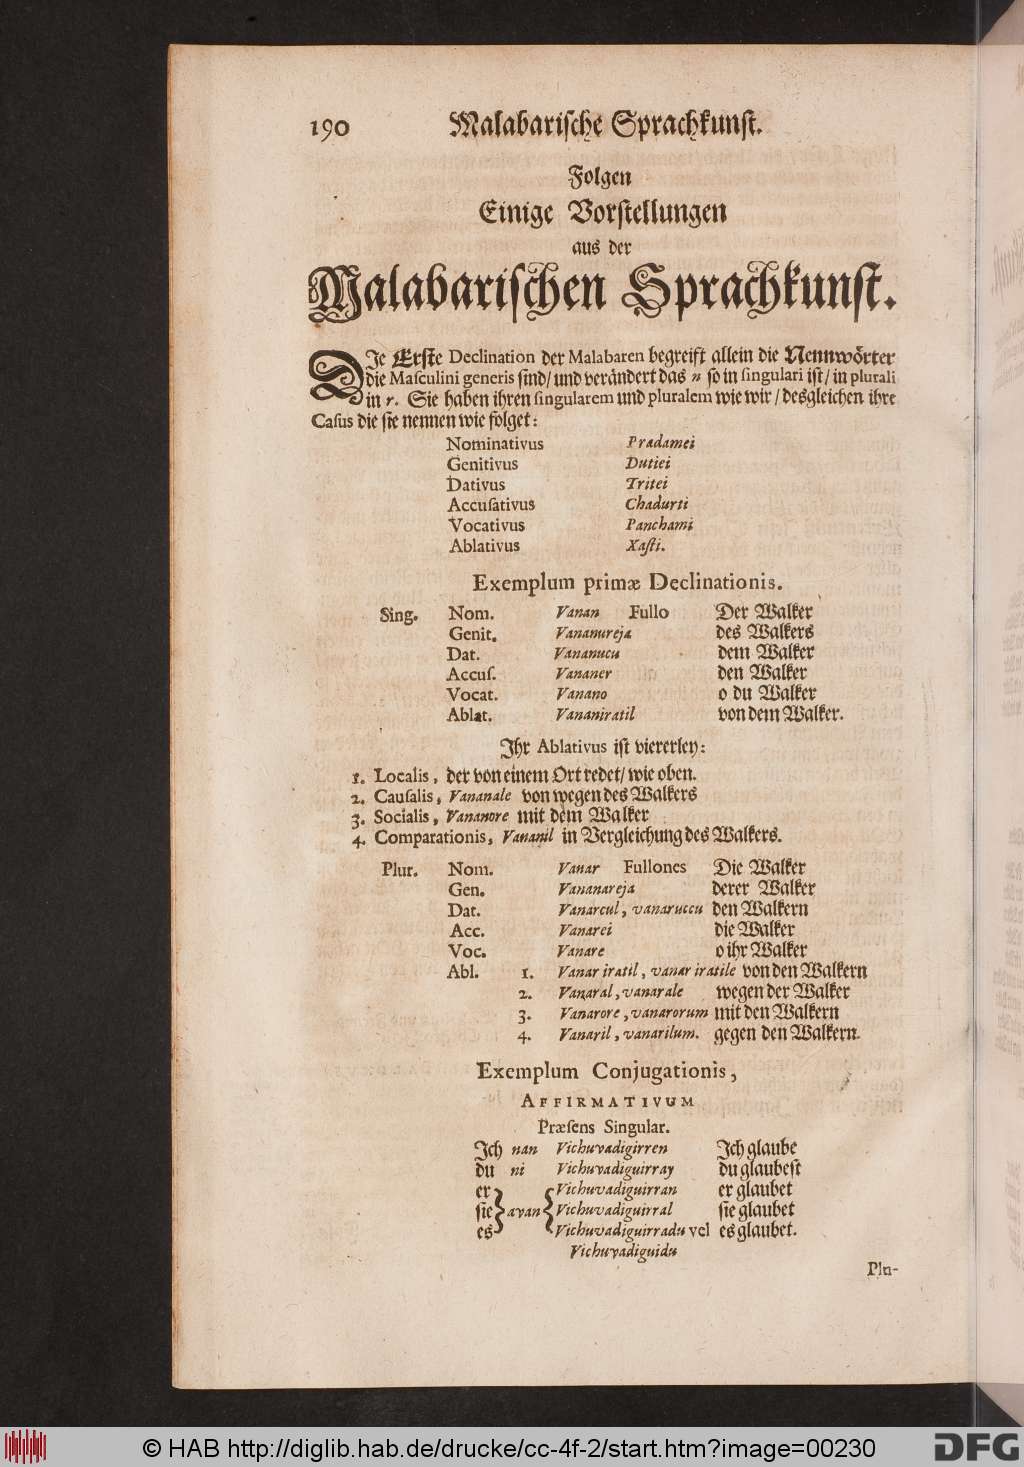 190 Malabarische Sprachkunst.
Folgen
Einige Vorstellungen
aus der
Malabarischen Sprachkunst.
DJe Erste Declination der Malabaren begreift allein die Nennwörter
die Masculini generis sind/ und verändert das n so in singulari ist/ in plurali
in r. Sie haben ihren singularem und pluralem wie wir / desgleichen ihre
Casus die sie nennen wie folget:
Nominativus Pradamei
Genitivus Dutiei
Dativus Tritei
Accusativus Chadurti
Vocativus Panchami
Ablativus Xasti.
Exemplum primæ Declinationis.
Sing. Nom. Vanan Fullo Der Walker
Genit. Vananureja des Walkers
Dat. Vananucu dem Walker
Accus. Vananer den Walker
Vocat. Vanano o du Walker
Ablat. Vananiratil von dem Walker.
Jhr Ablativus ist viererley:
1. Localis, der von einem Ort redet/ wie oben.
2. Causalis, Vananale von wegen des Walkers
3. Socialis, Vananore mit dem Walker
4. Comparationis, Vananil in Vergleichung des Walkers.
Plur. Nom. Vanar Fullones Die Walker
Gen. Vananareja derer Walker
Dat. Vanarcul, vanaruccu den Walkern
Acc. Vanarei die Walker
Voc. Vanare o ihr Walker
Abl. 1. Vanar iratil, vanar iratile von den Walkern
2. Vanaral, vanarale wegen der Walker
3. Vanarore, vanarorum mit den Walkern
4. Vanaril, vanarilum. gegen den Walkern.
Exemplum Conjugationis,
AFFIRMATIVUM
Præsens Singular.
Jch nan Vichuvadigirren Jch glaube
du ni Vichuvadiguirray du glaubest
er Vichuvadiguirran er glaubet
sie avan Vichuvadiguirral sie glaubet
es Vichuvadiguirradu vel es glaubet.
Vichuvadiguidu
Plu-
© HAB http://diglib.hab.de/drucke/cc-4f-2/start.htm?image=00230 DFG